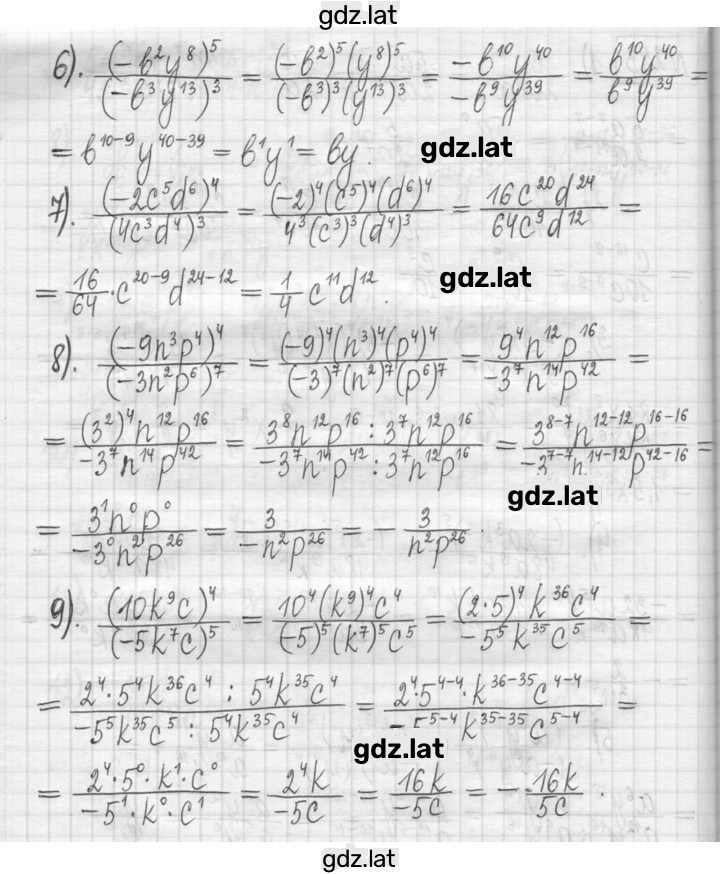 gdz.lat
6). (-в²y⁸)⁵/(-в³y¹³)³ = (-в²)⁵(y⁸)⁵/(-в³)³(y¹³)³ = -в¹⁰y⁴⁰/-в⁹y³⁹ = в¹⁰y⁴⁰/в⁹y³⁹ =
= в¹⁰⁻⁹y⁴⁰⁻³⁹ = в¹y¹ = вy. gdz.lat
7). (-2c⁵d⁶)⁴/(4c³d⁴)³ = (-2)⁴(c⁵)⁴(d⁶)⁴/4³(c³)³(d⁴)³ = 16c²⁰d²⁴/64c⁹d¹² =
= 16/64·c²⁰⁻⁹d²⁴⁻¹² = 1/4 c¹¹d¹². gdz.lat
8). (-9n³p⁴)⁴/(-3n²p⁶)⁷ = (-9)⁴(n³)⁴(p⁴)⁴/(-3)⁷(n²)⁷(p⁶)⁷ = 9⁴n¹²p¹⁶/-3⁷n¹⁴p⁴² =
= (3²)⁴n¹²p¹⁶/-3⁷n¹⁴p⁴² = 3⁸n¹²p¹⁶ : 3⁷n¹²p¹⁶/-3⁷n¹⁴p⁴² : 3⁷n¹²p¹⁶ = 3⁸⁻⁷n¹²⁻¹²p¹⁶⁻¹⁶/-3⁷⁻⁷n¹⁴⁻¹²p⁴²⁻¹⁶ =
gdz.lat
= 3¹n⁰p⁰/-3⁰n²p²⁶ = 3/-n²p²⁶ = - 3/n²p²⁶.
9). (10k⁹c)⁴/(-5k⁷c)⁵ = 10⁴(k⁹)⁴c⁴/(-5)⁵(k⁷)⁵c⁵ = (2·5)⁴k³⁶c⁴/-5⁵k³⁵c⁵ =
= 2⁴·5⁴k³⁶c⁴ : 5⁴k³⁵c⁴/-5⁵k³⁵c⁵ : 5⁴k³⁵c⁴ = 2⁴·5⁴⁻⁴·k³⁶⁻³⁵c⁴⁻⁴/-5⁵⁻⁴k³⁵⁻³⁵c⁵⁻⁴ =
gdz.lat
= 2⁴·5⁰·k¹·c⁰/-5¹·k⁰·c¹ = 2⁴k/-5c = 16k/-5c = - 16k/5c.
gdz.lat